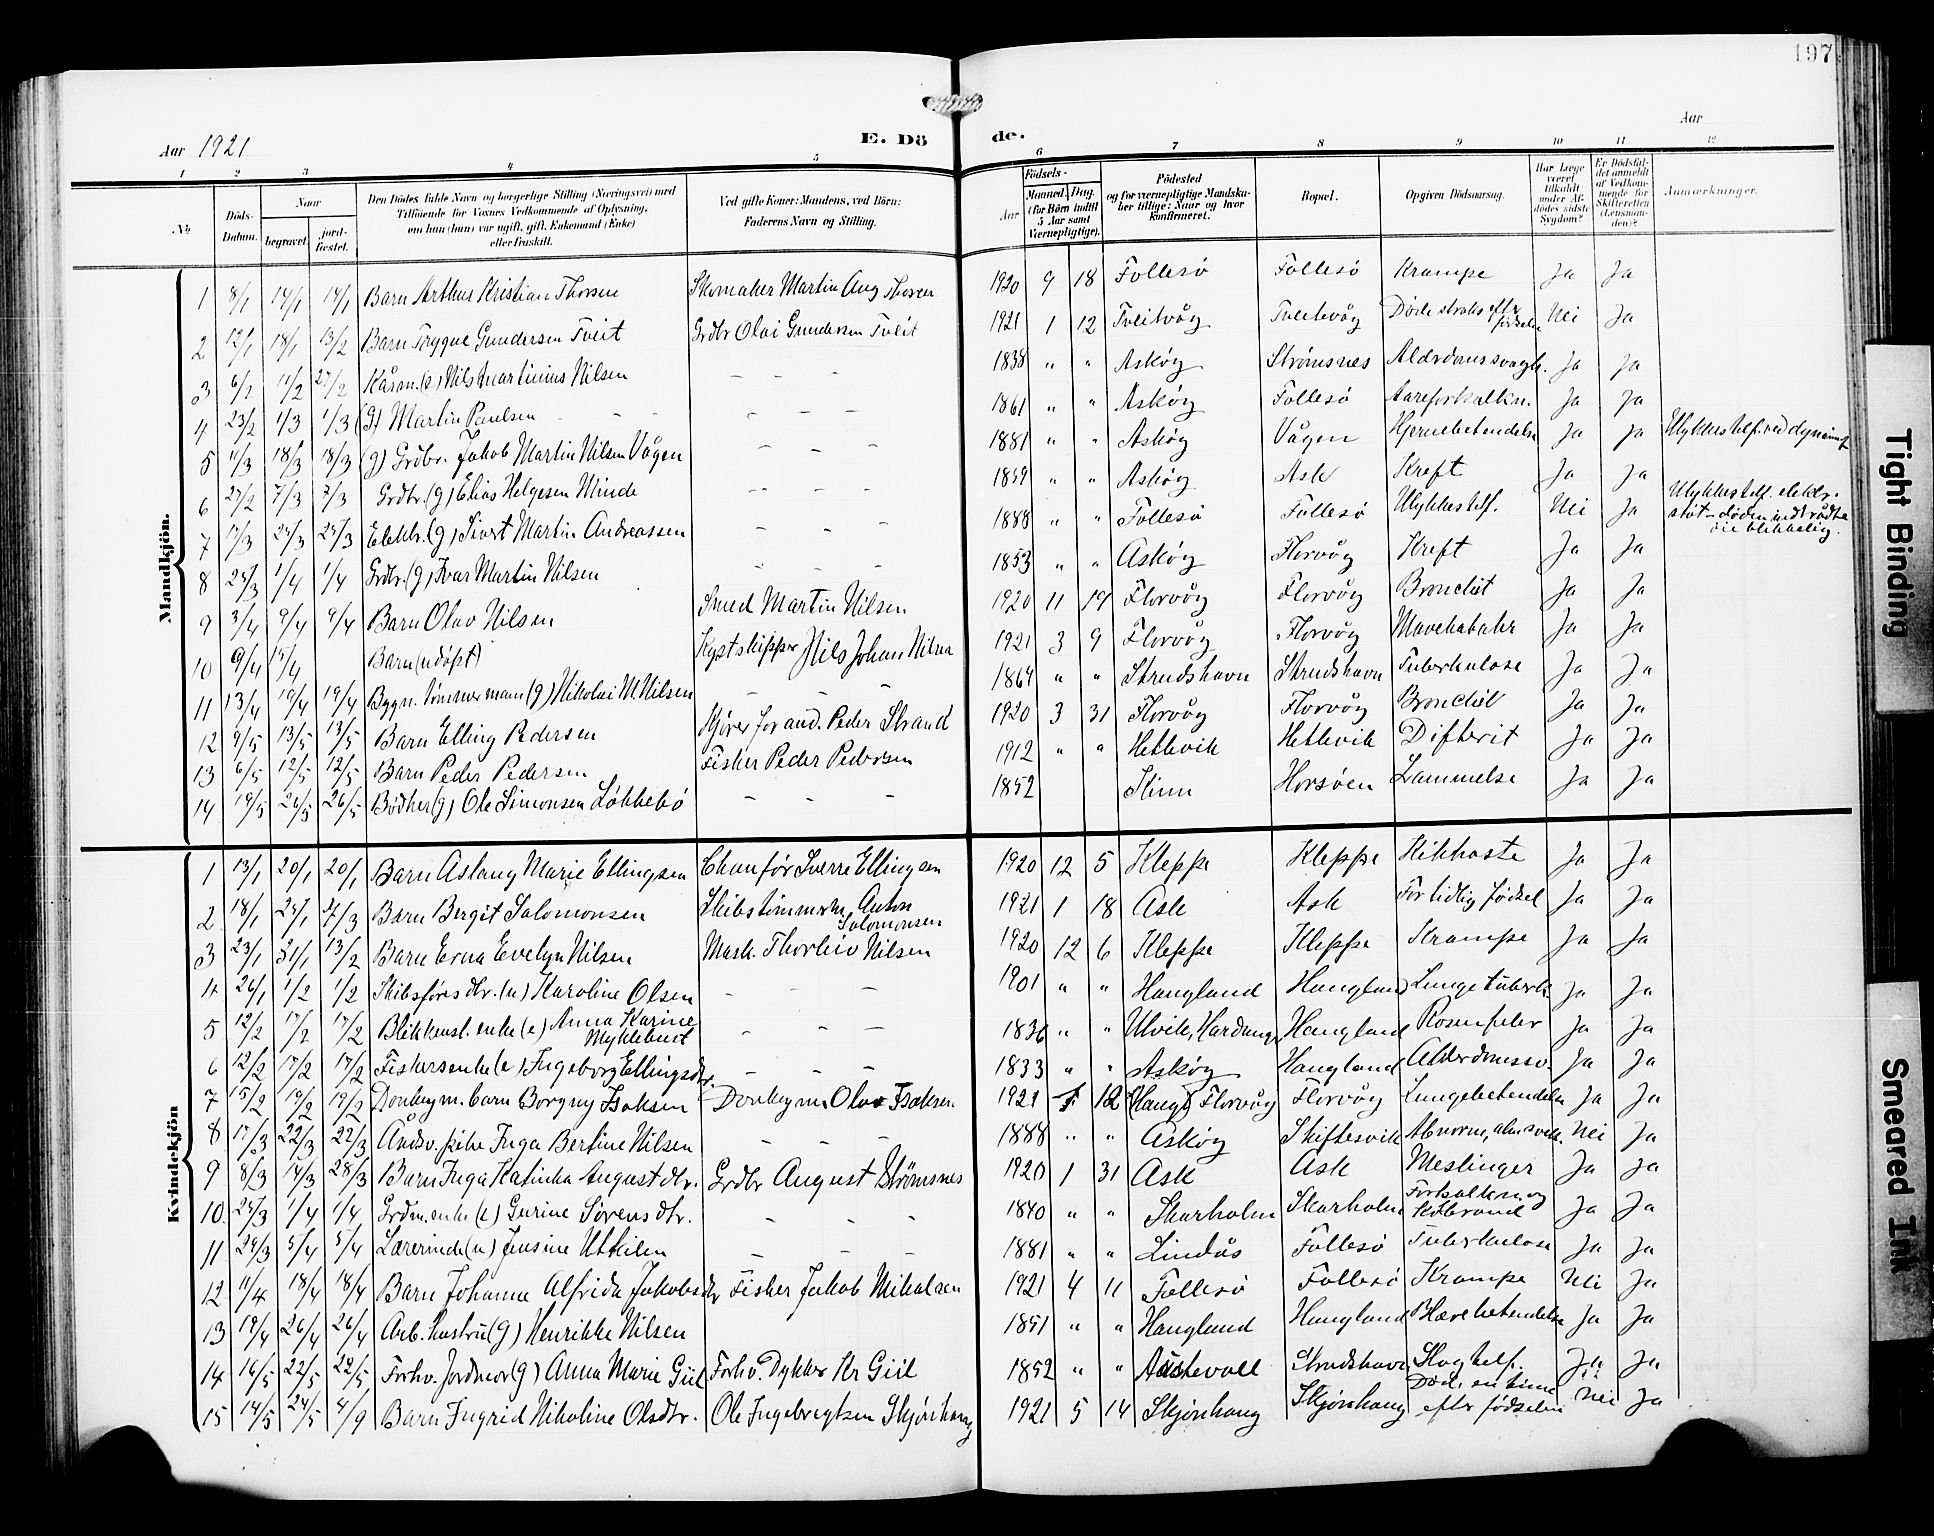 197
Aar 1921
E. Dö
de.
Aar
1 2 3 4 5 6 7 8 9 10 11 12
№
Döds-Datum.
Naar
begravet.
jord-fæstet.
Den Dödes fulde Navn og borgerlige Stilling (Næringsvei) med
Tilföiende for Voxnes Vedkommende af Oplysning,
om han (hun) var ugift, gift, Enkemand (Enke)
eller fraskilt.
Ved gifte Koner: Mandens, ved Börn:
Faderens Navn og Stilling.
Födsels-
Aar
Maaned. Dag.
(for Börn indtil
5 Aar samt
Værnepligtige).
Födested
og for værnepligtige Mandska-
ber tillige: Naar og hvor
konfirmeret.
Bopæl.
Opgiven Dödsaarsag.
Har Læge
været
tilkaldt
under Af-
dödes sidste
Sygdom?
Er Dödsfal-
det anmeldt
af Vedkom-
mende for
Skifteretten
(Lensman-
den)?
Anmærkninger.
Mandkjön.
1 8/1 14/1 14/1 Barn Arthur Kristian Thorsen Skomaker Martin Aug Thorsen 1920 9 18 Follesö Follesö Krampe Ja Ja
2 12/1 18/1 13/2 Barn Trygve Gundersen Tveit Grdbr Olai Gundersen Tveit 1921 1 12 Tveitvåg Tveitvåg Döde straks efter födselen Nei Ja
3 6/2 11/2 27/2 Kårm. (e) Nils Martinius Nilsen – – – 1838 " " Askøy Strømsnes Alderdomssvagh. Ja Ja
4 23/2 1/3 1/3 (g) Martin Paulsen – – – 1861 " " Askøy Follesö Aareforkalkn. Ja Ja
5 11/3 18/3 18/3 (g) Grdbr. Jakob Martin Nilsen Vågen – – – 1881 " " Askøy Vågen Hjernebetendelse Ja Ja Ulykkestilf. ved dynamit
6 27/2 7/3 7/3 Grdbr. (g) Elias Helgesen Minde – – – 1859 " " Askøy Ask Kreft Ja Ja
7 17/3 24/3 24/3 Elektr. (g) Sivert Martin Andreassen – – – 1888 " " Follesö Follesö Ulykkestilf. Nei Ja Ulykkestilf. elektr. støt – döden indtrådte öieblikkelig.
8 24/3 1/4 1/4 Grdbr. (g) Ivar Martin Nilsen – – – 1853 " " Askøy Florvåg Kreft Ja Ja
9 3/4 9/4 9/4 Barn Olav Nilsen Smed Martin Nilsen 1920 11 19 Florvåg Florvåg Bronchit Ja Ja
10 9/4 15/4 Barn (udöpt) Kystskipper Nils Johan Nilsen 1921 3 9 Florvåg Florvåg Mavekatahr Ja Ja
11 13/4 19/4 19/4 Bygn. tömmermann (g) Nikolai M Nilsen – – – 1864 " " Strudshavn Strudshavn Tuberkulose Ja Ja
12 9/5 13/5 13/5 Barn Elling Pedersen Kjører for and. Peder Strand 1920 3 31 Florvåg Florvåg Bronchit Ja Ja
13 6/5 12/5 12/5 Barn Peder Pedersen Fisker Peder Pedersen 1912 " " Hetlevik Hetlevik Difterit Ja Ja
14 19/5 26/5 26/5 Bødker (g) Ole Simonsen Løkkebø – – – 1852 Horsøen Lammelse Ja Ja
Kvindekjön
1 13/1 20/1 20/1 Barn Aslaug Marie Ellingsen Chauför Sverre Ellingsen 1920 12 5 Kleppe Kleppe Kikhoste Ja Ja
2 18/1 24/1 Barn Bergit Salomonsen Skibstömmerm. Anton Salomonsen 1921 1 18 Ask Ask For tidlig födsel Ja Ja
3 23/1 31/1 13/2 Barn Erna Evelyn Nilsen Mask. Thorleiv Nilsen 1920 12 6 Kleppe Kleppe Krampe Ja Ja
4 26/1 1/2 1/2 Skibsføres dtr. (u) Karoline Olsen – – – 1901 " " Haugland Haugland Lungetuberk. Ja Ja
5 12/2 17/2 17/2 Blikkensl. enke (e) Anna Karine Myklebust – – – 1836 " " Ulvik, Hardanger Haugland Rosenfeber Ja Ja
6 12/2 17/2 17/2 Fiskersenke (e) Ingeborg Ellingsdtr. – – – 1833 " " Askøy Haugland Alderdomssv. Ja Ja
7 15/2 19/2 19/2 Donkeym. barn Borgny Isaksen Donkeym. Olav Isaksen 1921 1 12 (Haugl) Florvåg Florvåg Lungebetendelse Ja Ja
8 17/3 22/3 22/3 Åndsv. pike Inga Bertine Nilsen – – – 1888 " " Askøy Skiftesvik Abnorm, alm. svek. Nei Ja
9 8/3 14/3 28/3 Barn Inga Katinka Augustdtr. Grdbr August Strømsnes 1920 1 31 Ask Ask Meslinger Ja Ja
10 24/3 1/4 1/4 Grdm. enke (e) Gurine Sørensdtr. – – – 1840 " " Skarholm Skarholm Forkalkn. og Koldbrand Ja Ja
11 29/3 5/4 5/4 Lærerinde (u) Jensine Utkilen – – – 1881 " " Lindås Follesö Tuberkulose Ja Ja
12 11/4 18/4 18/4 Barn Johanne Alfrida Jakobsdtr Fisker Jakob Mikalsen 1921 4 11 Follesö Follesö Krampe Nei Ja
13 19/4 26/4 26/4 Arb. hustru (g) Henrikke Nilsen 1851 " " Haugland Haugland Blærebetendelse Ja Ja
14 16/5 22/5 22/5 Forhv. Jordmor (g) Anna Marie Giil Forhv. Dykker Kr Giil 1852 " " Austevoll Strudshavn Slagtilf. Ja Ja
15 14/5 24/5 4/9 Barn Ingrid Nikoline Olsdtr. Ole Ingebrigtsen Skjönhaug 1921 5 14 Skjönhaug Skjönhaug Död en time efter födselen Nei Ja
Tight Binding
Smeared Ink